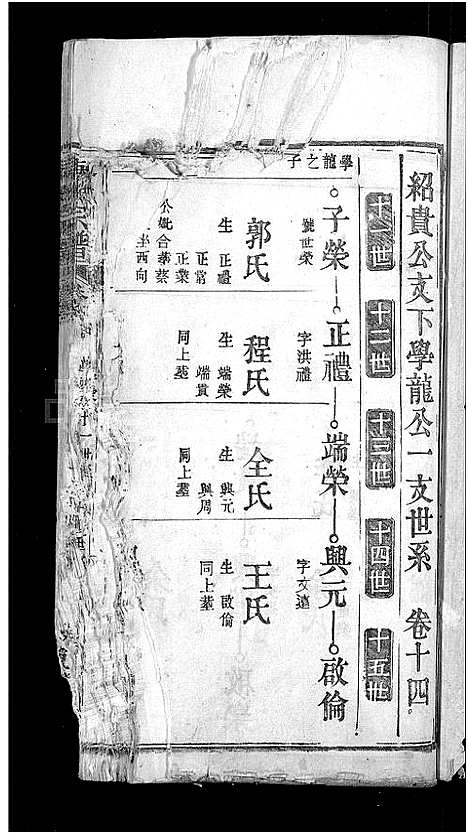 紹貴公支下學龍公一支世系 卷十四
十一世 十二世 十三世 十四世 十五世
學龍之子
子榮 正禮 端榮 興元 啟倫
號世榮 字洪禮 字文遠
郭氏 程氏 全氏 王氏
生 正禮 生 端榮 生 興元 生 啟倫
正常 端貫 興周 同上墓
正業 同上墓 同上墓
公妣合葬蔡
坐西向